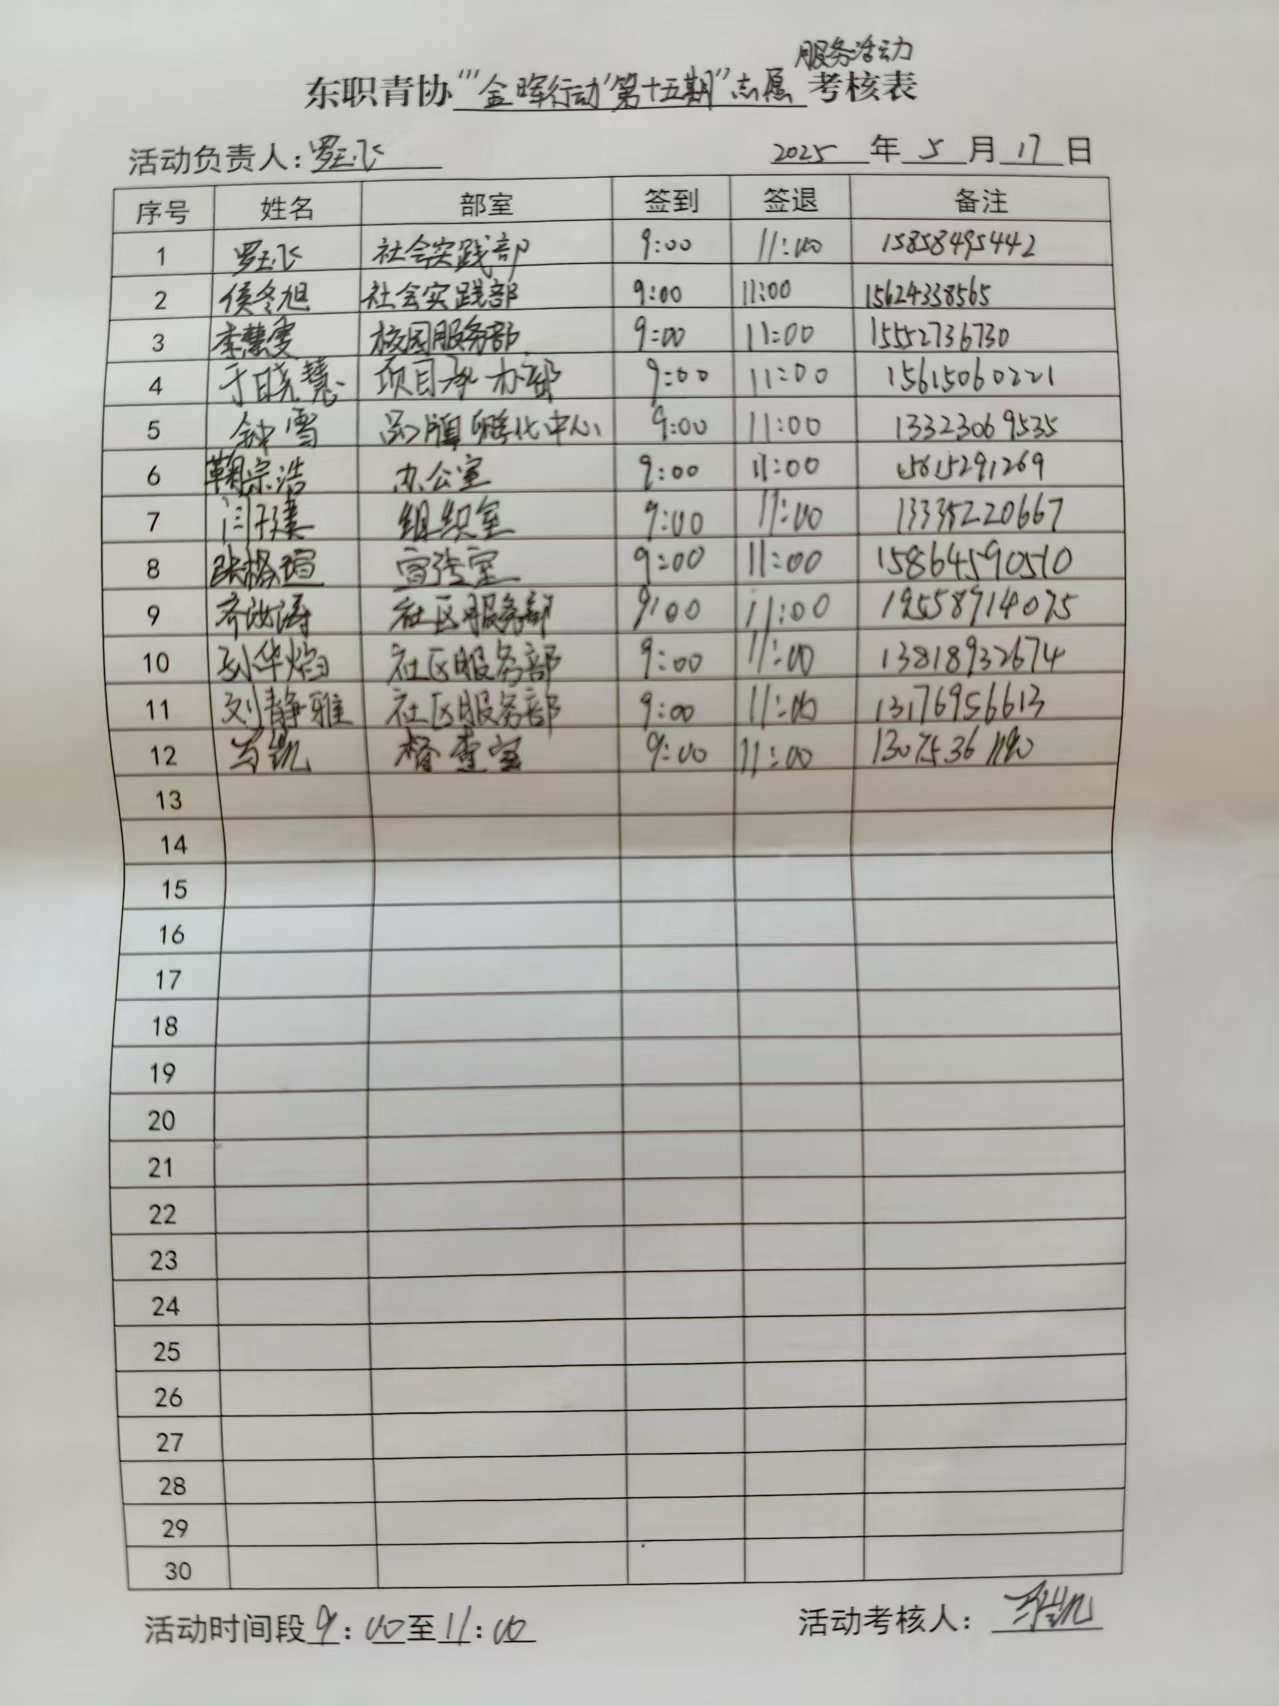 服务活动
东职青协"'金晖行动'第十五期"志愿考核表
活动负责人:罗玉飞 2025年5月17日
序号 姓名 部室 签到 签退 备注
1 罗玉飞 社会实践部 9:00 11:00 15858495442
2 侯冬旭 社会实践部 9:00 11:00 15624338565
3 李慧雯 校园服务部 9:00 11:00 15552736730
4 于晓慧 项目承办部 9:00 11:00 15615060221
5 钟雪 品牌孵化中心 9:00 11:00 13323069535
6 鞠宗浩 办公室 9:00 11:00
7 组织室 9:00 11:00 13335220667
8 宣传室 9:00 11:00 15864590510
9 社区服务部 9:00 11:00 19558914075
10 刘华焰 社区服务部 9:00 11:00 13818932674
11 刘静雅 社区服务部 9:00 11:00 13176956613
12 督查室 9:00 11:00
13
14
15
16
17
18
19
20
21
22
23
24
25
26
27
28
29
30
活动时间段9:00至11:00 活动考核人: